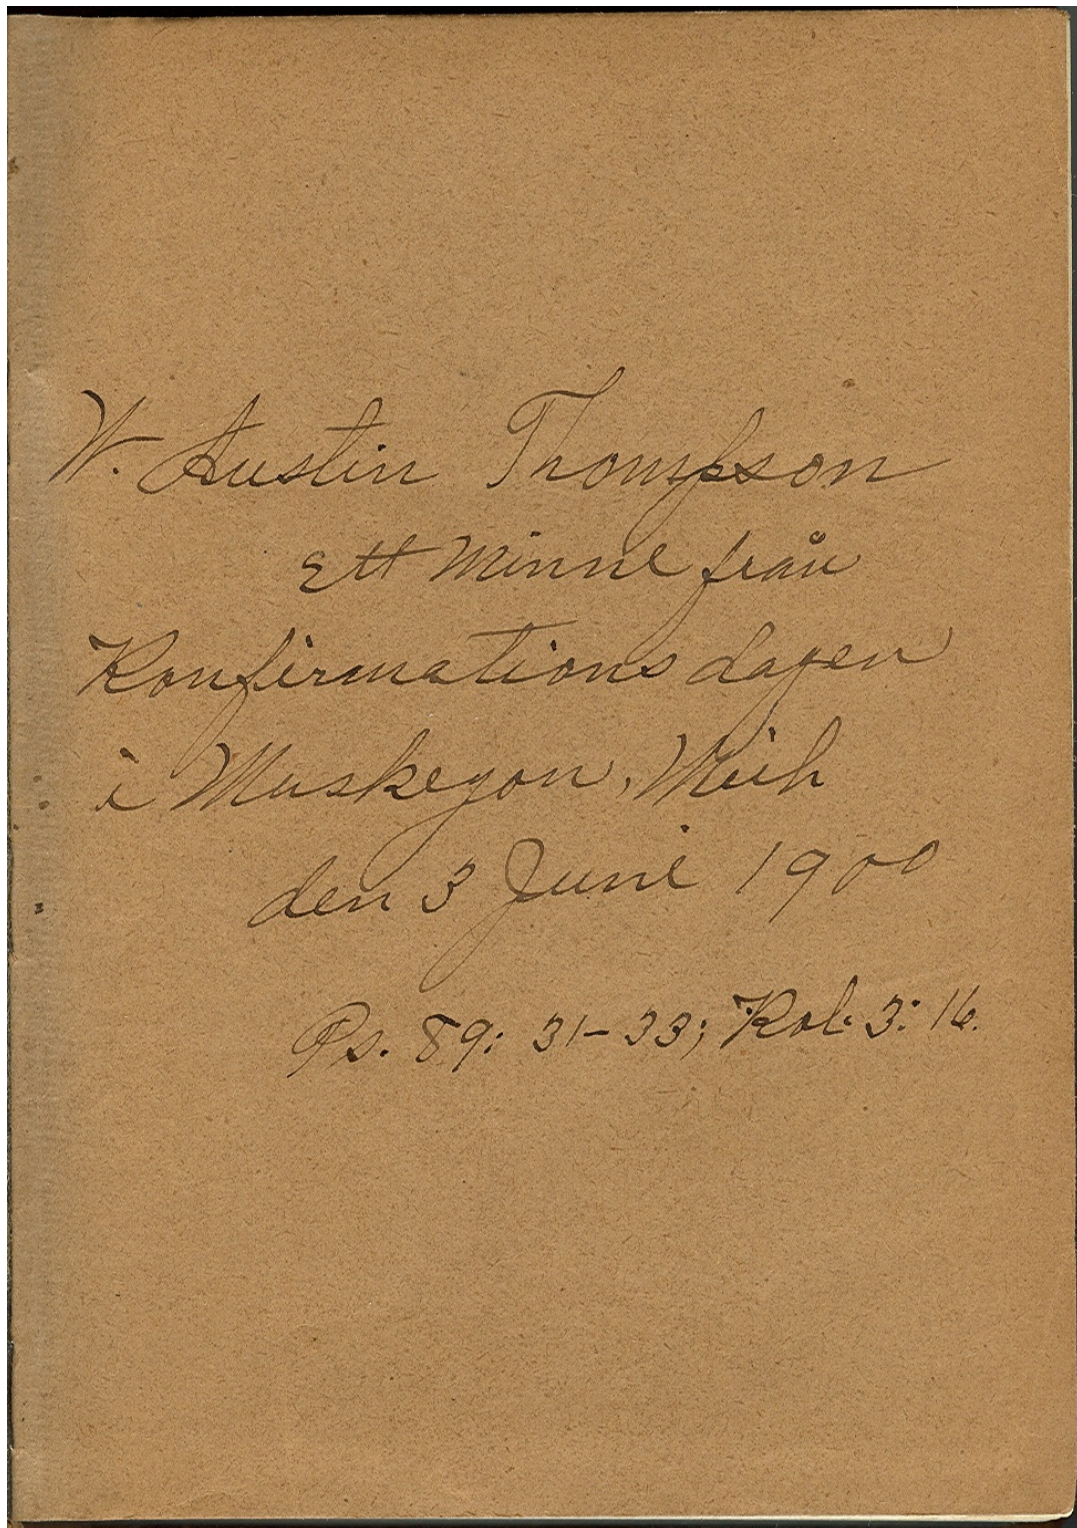 W. Austin Thompson
Ett Minne från
Konfirmationsdagen
i Muskegon, Mich
den 3 Juni 1900
Ps. 89: 31-33; Kol. 3: 16.